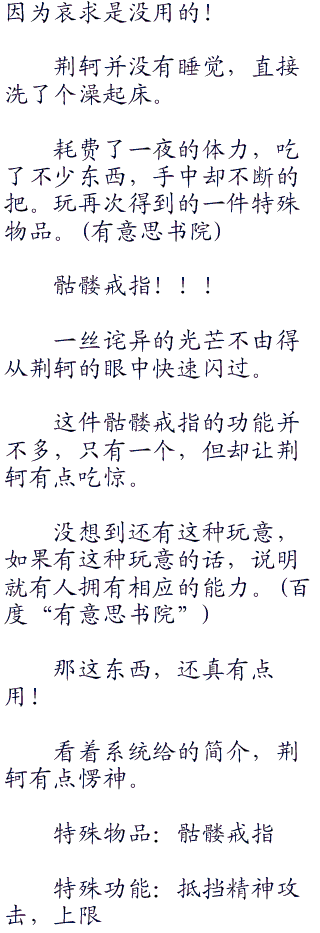 因为哀求是没用的！
荆轲并没有睡觉，直接
洗了个澡起床。
耗费了一夜的体力，吃
了不少东西，手中却不断的
把。玩再次得到的一件特殊
物品。(有意思书院)
骷髅戒指！！！
一丝诧异的光芒不由得
从荆轲的眼中快速闪过。
这件骷髅戒指的功能并
不多，只有一个，但却让荆
轲有点吃惊。
没想到还有这种玩意，
如果有这种玩意的话，说明
就有人拥有相应的能力。(百
度“有意思书院”)
那这东西，还真有点
用！
看着系统给的简介，荆
轲有点愣神。
特殊物品：骷髅戒指
特殊功能：抵挡精神攻
击，上限